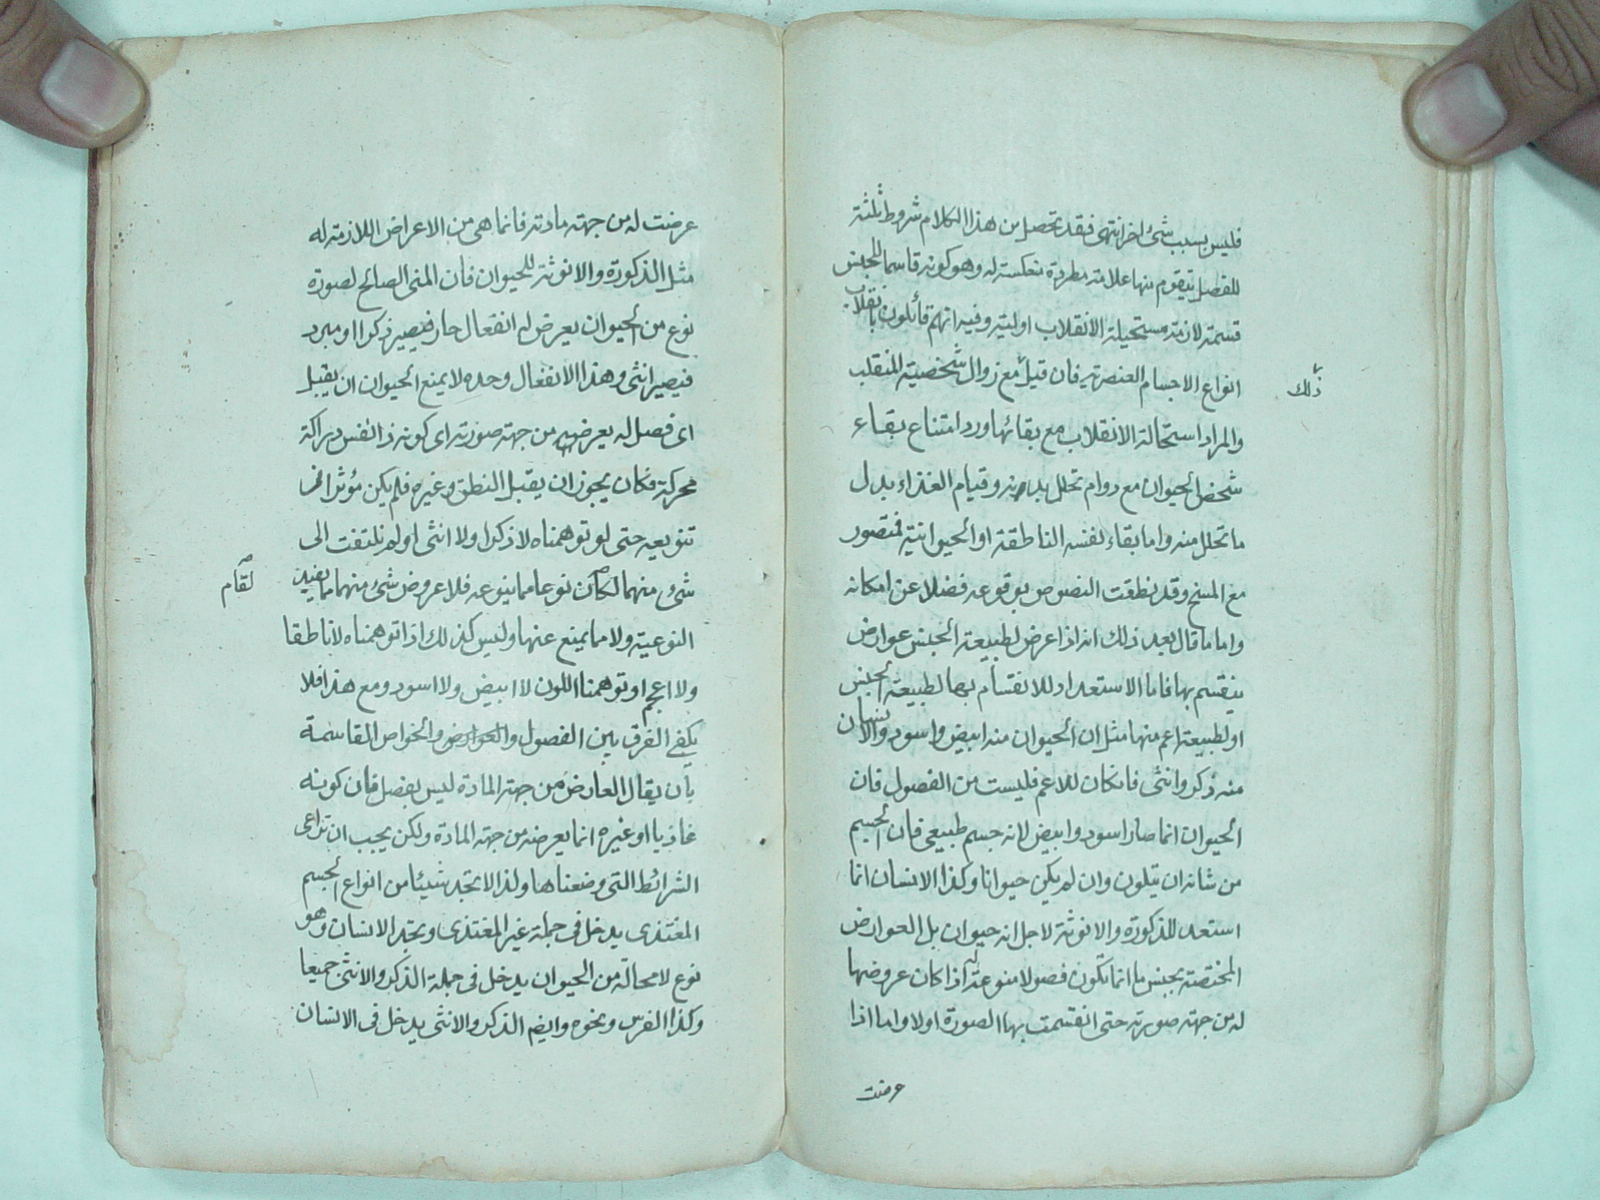 فليس بسبب شئ اخر انتهى فقد تحصل من هذا الكلام شروط ثلثة
للفصل يتقوم منها علامة مطردة منعكسة له وهو كونه قاسما للجنس
قسمة لازمة مستحيلة الانقلاب اولية وفيه انهم قائلون بانقلاب
انواع الاجسام العنصرية فان قيل مع زوال شخصية المنقلب
ذلك
والمراد استحالة الانقلاب مع بقائها ورد امتناع بقاء
شخص الحيوان مع دوام تحلل بدنه وقيام الغذاء بدل
ما تحلل منه واما بقاء نفسه الناطقة او الحيوانية فمتصور
مع المسخ وقد نطقت النصوص بوقوعه فضلا عن امكانه
واما ما قال بعد ذلك انه اذا عرض لطبيعة الجنس عوارض
ينقسم بها فاما الاستعداد للانقسام بها لطبيعة الجنس
او لطبيعة اعم منها مثل ان الحيوان منه ابيض واسود والانسان
منه ذكر وانثى فان كان للاعم فليست من الفصول فان
الحيوان انما صار اسود وابيض لانه جسم طبيعي فان الجسم
من شانه ان يتلون وان لم يكن حيوانا وكذا الانسان انما
استعد للذكورة والانوثة لاجل انه حيوان بل العوارض
المختصة بجنس ما انما تكون فصولا منوعة له اذا كان عروضها
له من جهة صورته حتى انقسمت بها الصورة اولا واما اذا
عرضت
عرضت له من جهة مادته فانما هى من الاعراض اللازمة له
مثل الذكورة والانوثة للحيوان فان المنى الصالح لصورة
نوع من الحيوان يعرض له انفعال حار فيصير ذكرا او مبرد
فيصير انثى وهذا الانفعال وحده لا يمنع الحيوان ان يقبل
اى فصل له يعرض من جهة صورته اى كونه ذا نفس دراكة
محركة فكان يجوز ان يقبل النطق وغيره فلم يكن مؤثرا فى
تنويعه حتى لو توهمناه لا ذكرا ولا انثى او لم نلتفت الى
شئ منهما لكان نوعا مما ينوعه فلا عروض شئ منهما مما يفيد
لقام
النوعية ولا مما يمنع عنها وليس كذلك اذا توهمناه لا ناطقا
ولا اعجم او توهمنا اللون لا ابيض ولا اسود ومع هذا فلا
يكفى الفرق بين الفصول والعوارض والخواص القاسمة
بان يقال العارض من جهة المادة ليس بفصل فان كونه
غاذيا او غيره انما يعرضه من جهة المادة ولكن يجب ان تراعى
الشرائط التى وضعناها ولذا لا تجد شيئا من انواع الجسم
المغتذى يدخل فى جملة غير المغتذى وتجد الانسان وهو
نوع لا محالة من الحيوان يدخل فى جملة الذكر والانثى جميعا
وكذا الفرس ونحوه وايضم الذكر والانثى يدخل فى الانسان